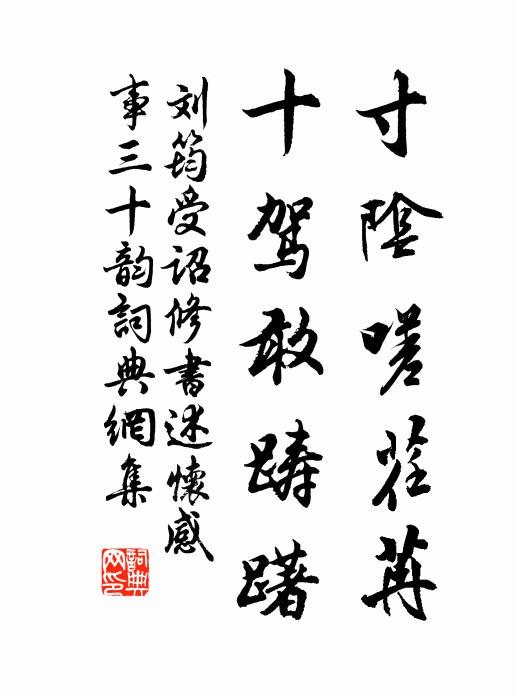 寸陰嗟荏苒
十駕敢躊躇
刘筠受詔修書述懷感
事三十韵詞典網集
詞典网印